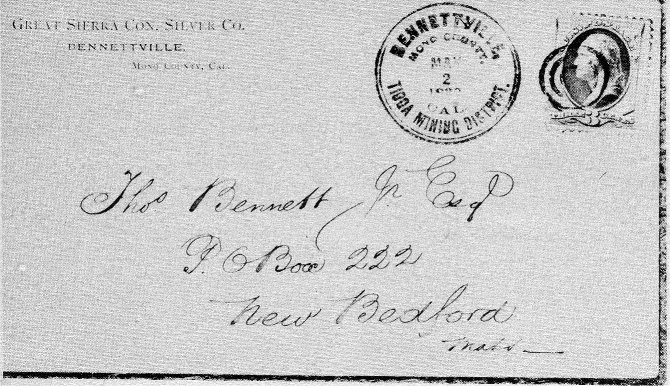 GREAT SIERRA CON. SILVER CO.
BENNETTVILLE,
MONO COUNTY, CAL.
BENNETTVILLE,
MONO COUNTY.
MAY
2
CAL.
TIOGA MINING DISTRICT.
Thos Bennett Jr Esq
P. O Box 222
New Bedford
Mass